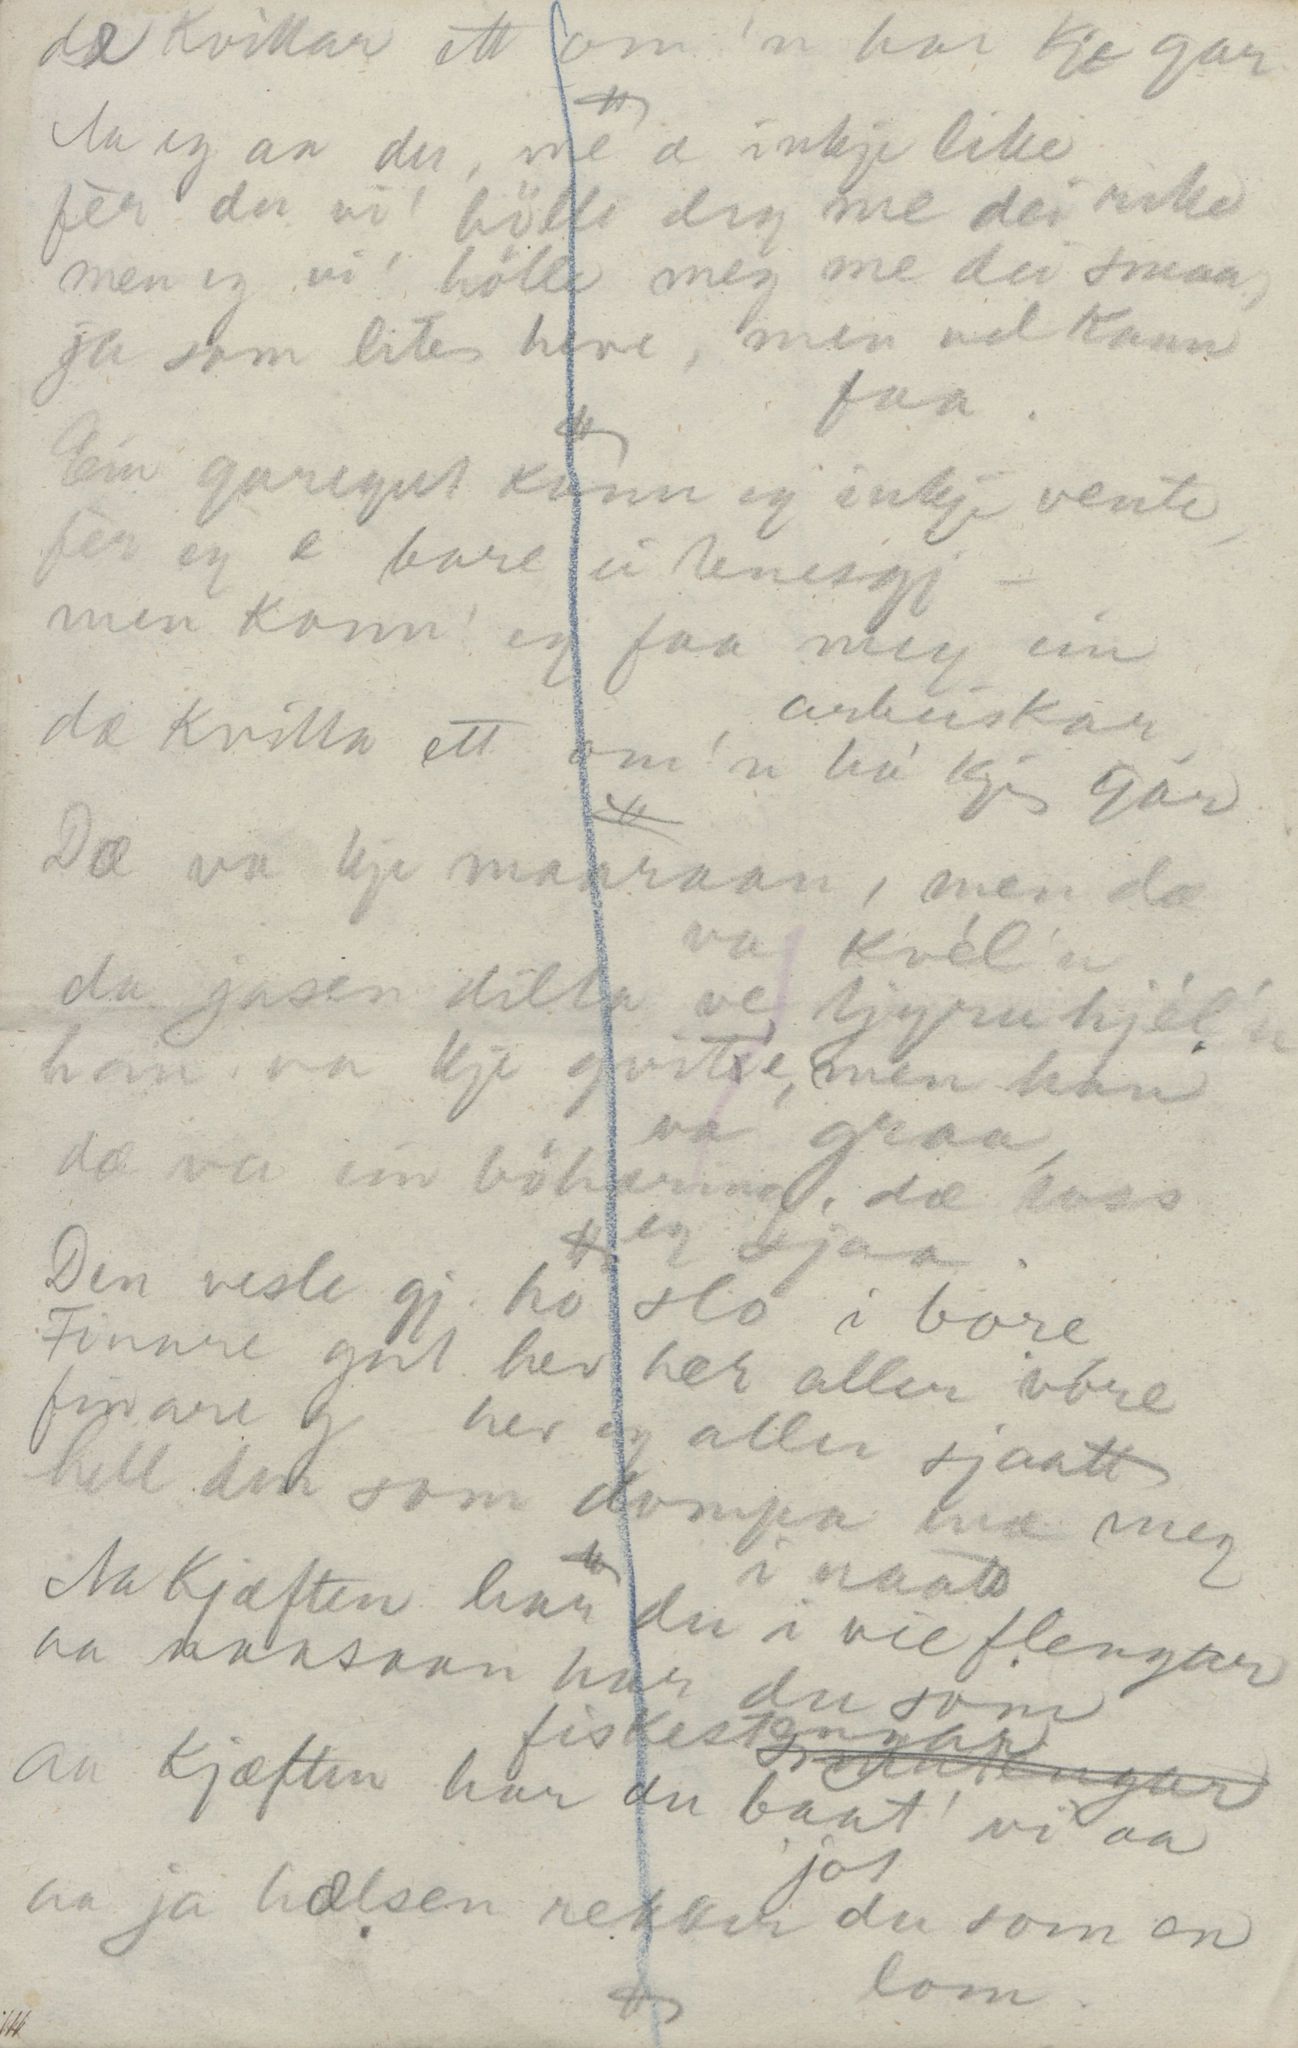 dæ kvittar ett om 'n har kje gar
Aa eg aa du, me æ inkje like
fèr du vi' hölle deg me dei rike
men eg vi' hölle meg me dei smaa,
ja som lite heve, men vel kann
faa.
Ein garegut kann eg inkje vente,
fèr eg e bare ei tenesgj –
men kann' eg faa meg ein
arbeiskar,
dæ kvitta ett om 'n ha' kje gar
Dæ va kje maaraan, men dæ
va kvél'n
da jasen dilta ve tjyruhjél'n
han va kje qvite, men han
va graa,
dæ va ein böhæring, dæ kass
eg sjaa.
Den vesle gj. ho slo i bore
Finare gut hev her aller vöre
finare g hev eg aller sjaatt
hell den som dompa mæ meg
i naatt
Aa kjæften har du i vie flengar
aa naasaan har du som
fiskestengar
aa kjæften har du baat' vi aa
jot
aa ja hælsen rekker du som en
lom.